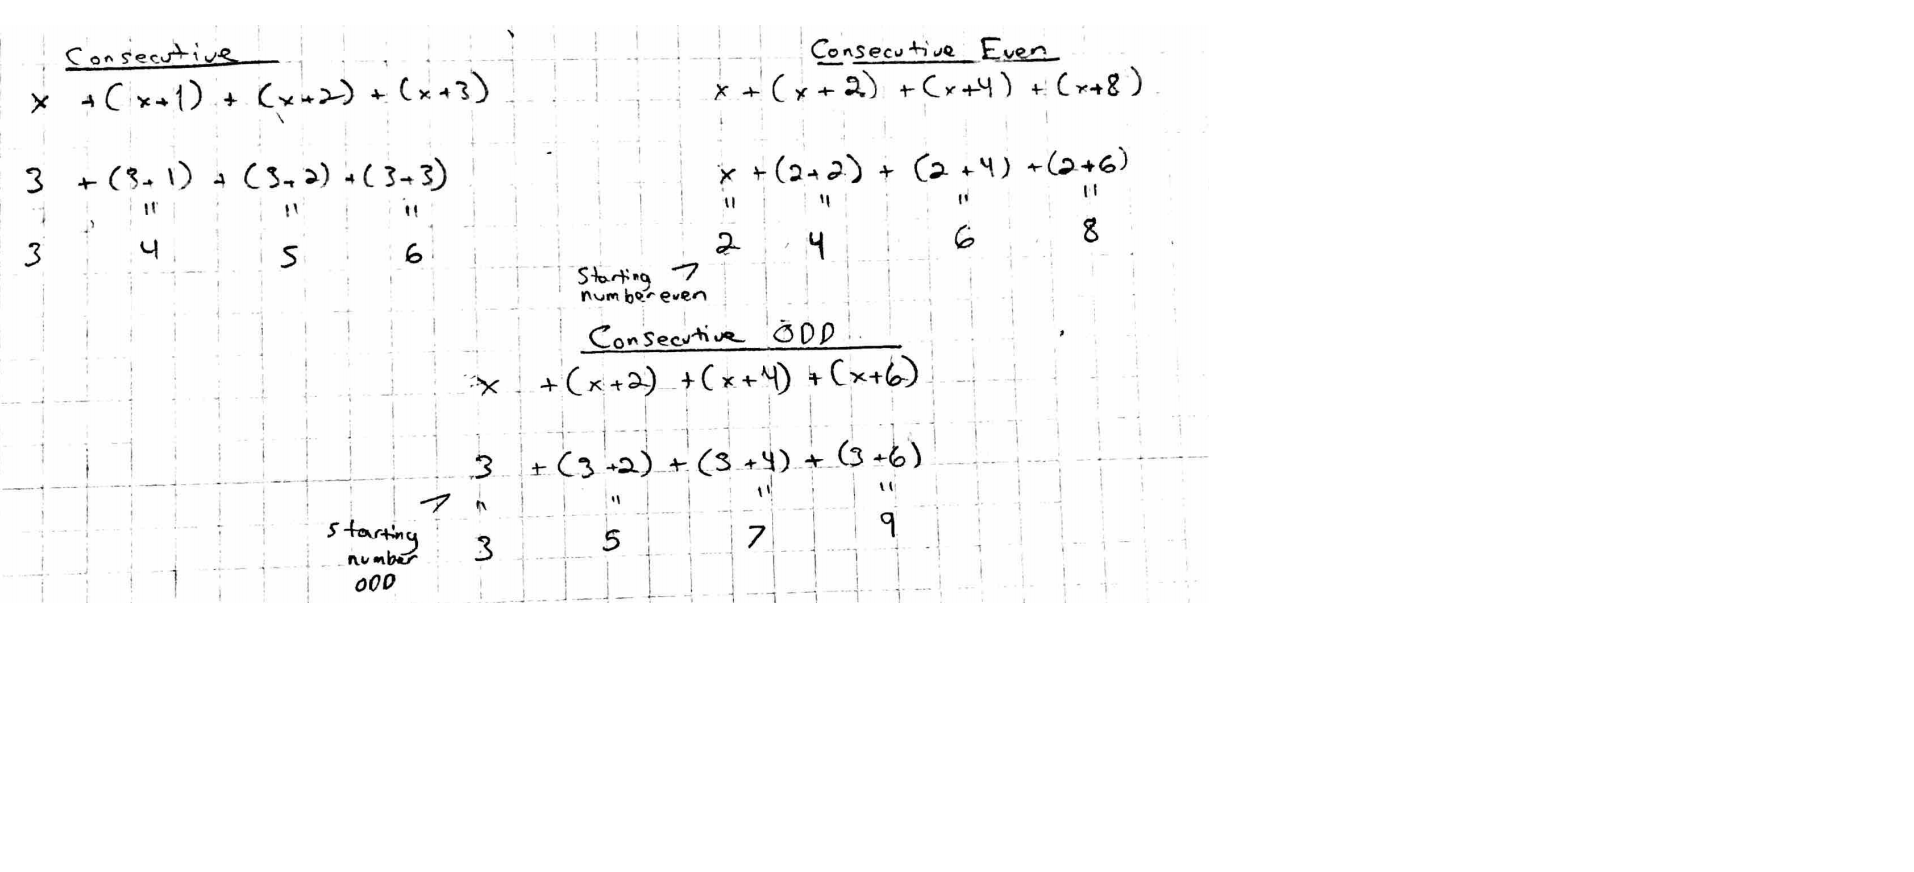 Consecutive
x + (x+1) + (x+2) + (x+3)
3 + (3+1) + (3+2) + (3+3)
" " "
3 4 5 6
Consecutive Even
x + (x+2) + (x+4) + (x+8)
x + (2+2) + (2+4) + (2+6)
" " " "
2 4 6 8
Starting
number even
Consecutive ODD
x + (x+2) + (x+4) + (x+6)
3 + (3+2) + (3+4) + (3+6)
" " " "
3 5 7 9
starting
number
ODD